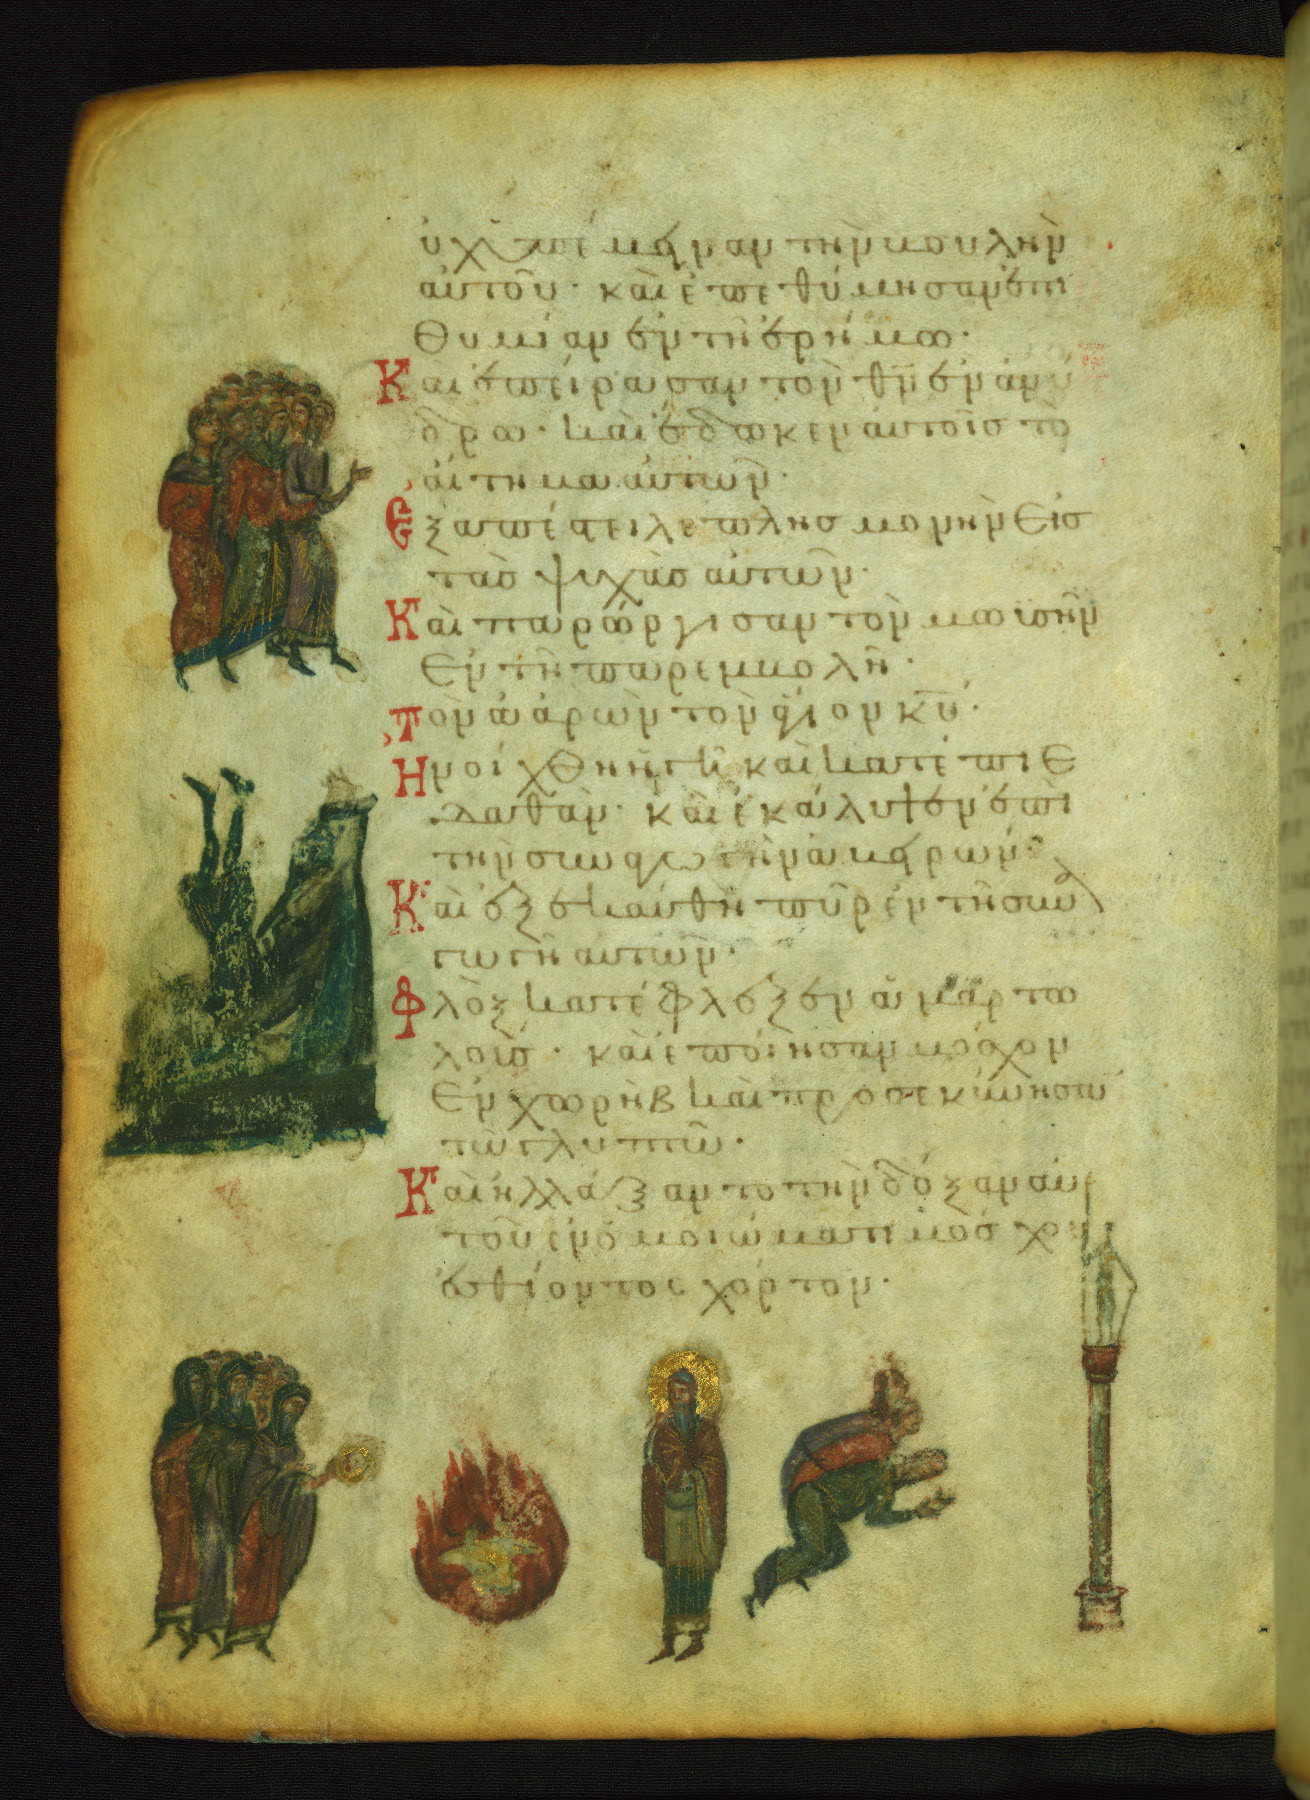 ὐχ ὑπέμειναν τὴν βουλὴν
αὐτοῦ· καὶ ἐπεθύμησαν ἐπι
θυμίαν ἐν τῆ ἐρήμω·
Καὶ ἐπείρασαν τὸν θ̅ν̅ ἐν ἀνύ
δρω· καὶ ἔδωκεν αὐτοῖς τὸ
αἴτημα αὐτῶν·
Ἐξαπέστειλε πλησμονὴν εἰς
τὰς ψυχὰς αὐτῶν·
Καὶ παρώργισαν τὸν μωϊσῆν
ἐν τῆ παρεμβολῆ·
τὸν ἀαρὼν τὸν ἅγιον κ̅υ̅·
Ἠνοίχθη ἡ γῆ καὶ κατέπιε
δαθὰν· καὶ ἐκάλυψεν ἐπὶ
τὴν συναγωγὴν ἀβειρών·
Καὶ ἐξεκαύθη πῦρ ἐν τῆ συνα
γωγῆ αὐτῶν·
Φλὸξ κατέφλεξεν ἁμαρτω
λούς· καὶ ἐποίησαν μόσχον
ἐν χωρὴβ καὶ προσεκύνησαν
τῶ γλυπτῶ·
Καὶ ἠλλάξαντο τὴν δόξαν αὐ
τοῦ ἐν ὁμοιώματι μόσχου
ἐσθίοντος χόρτον·